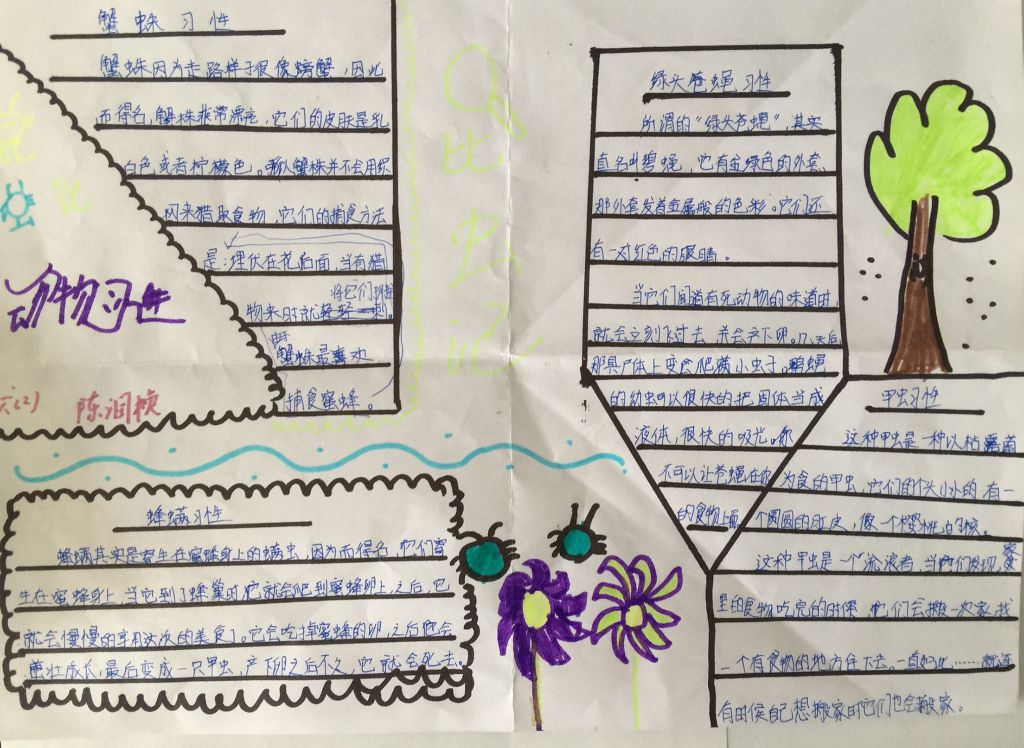 蟹蛛习性
蟹蛛因为走路样子很像螃蟹,因此
而得名,蟹株非常漂亮,它们的皮肤是乳
白色或者柠檬色。蟹株并不会用织
网来猎取食物,它们的捕食方法
是:埋伏在花后面,当有猎
将它们
物来时就轻轻一刺。
蟹蛛最喜欢
捕食蜜蜂。
动物习性
六(2) 陈润桢
虫
记
绿头苍蝇习性
所谓的“绿头苍蝇”,其实
真名叫碧蝇,它有金绿色的外套,
那外套发着金属般的色彩。它们还
有一对红色的眼睛。
当它们闻道有死动物的味道时,
就会立刻飞过去,并会产下卵。几天后
那具尸体上变会爬满小虫子。碧蝇
的幼虫可以很快的把固体当成
液体,很快的吸光。你
不可以让苍蝇在你
的食物上面
甲虫习性
这种甲虫是一种以枯露菌
为食的甲虫,它们的个头小小的,有一
个圆圆的肚皮,像一个樱桃的核。
这种甲虫是一个流浪者,当它们发现,家
里的食物吃完的时候,它们会搬一次家,找
一个有食物的地方住下去。一直如此……就连
有时候自己想搬家时它们也会搬家。
蜂螨习性
蜂螨其实是寄生在蜜蜂身上的螨虫,因为而得名,它们寄
生在蜜蜂身上,当它到了蜂巢时,它就会爬到蜜蜂卵上,之后,它
就会慢慢的享用这次的美食了。它会吃掉蜜蜂的卵,之后他会
茁壮成长,最后变成一只甲虫,产下卵之后不久,它就会死去。